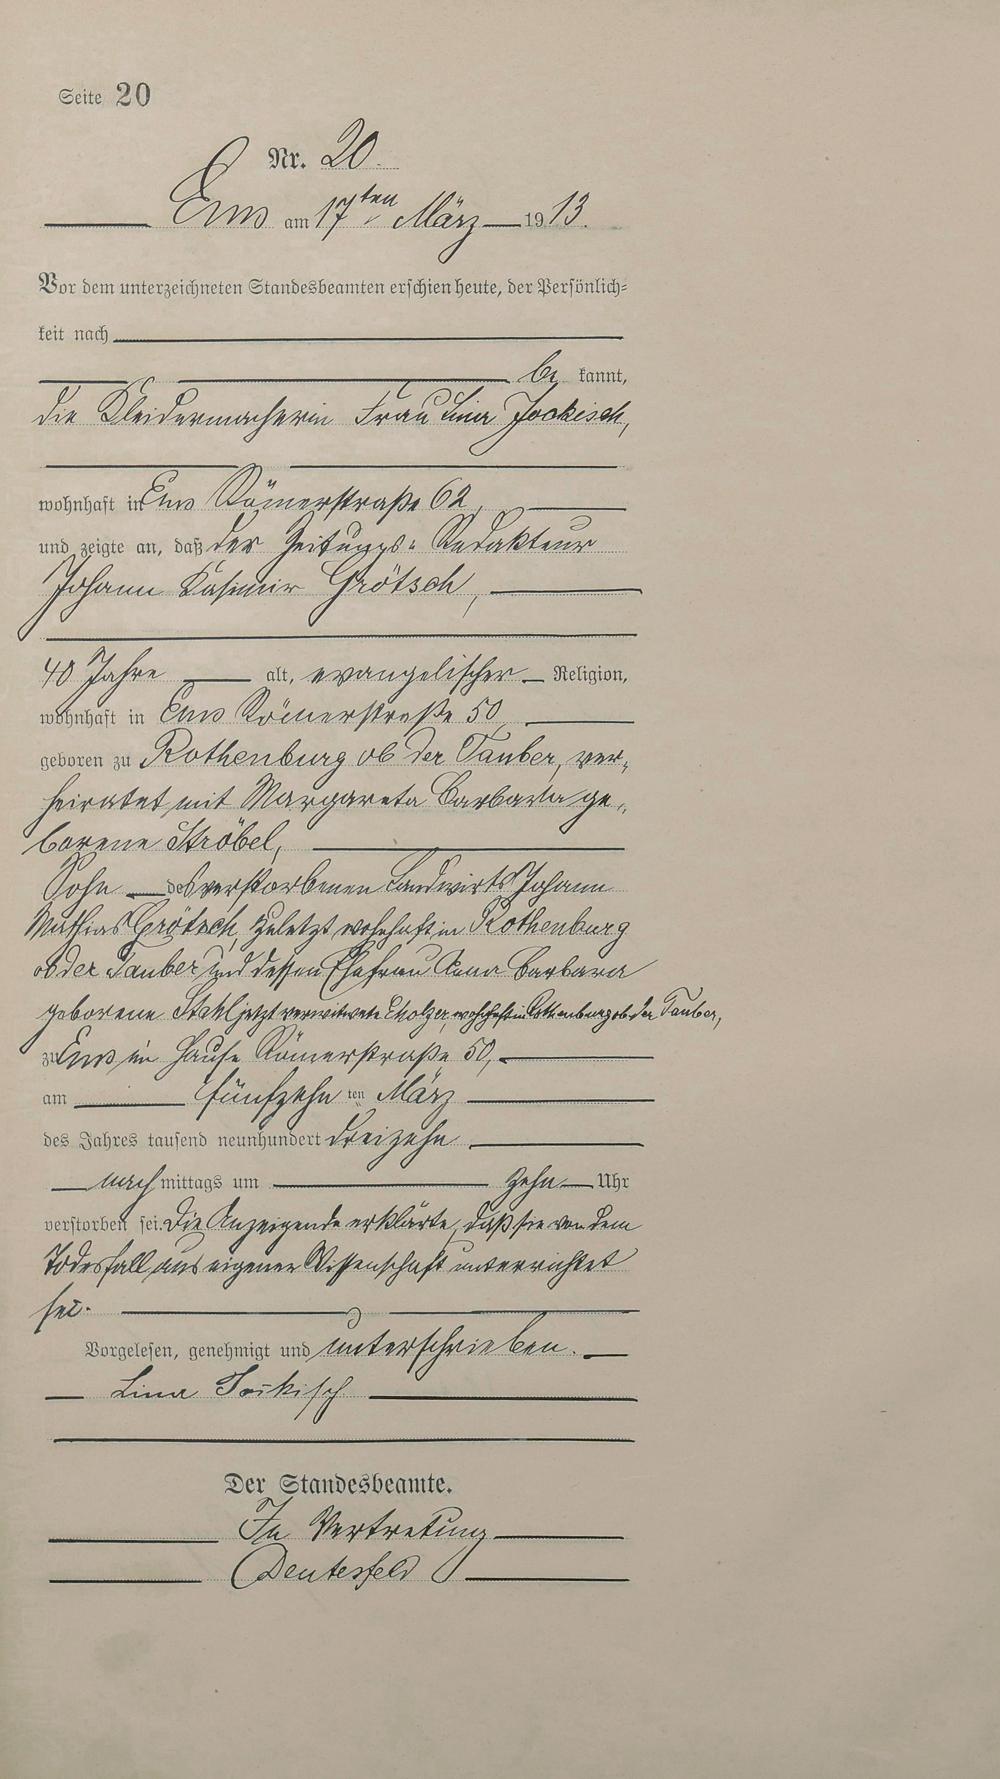 Seite 20
Nr. 20.
Ems am 17ten März 1913.
Vor dem unterzeichneten Standesbeamten erschien heute, der Persönlich=
keit nach
be kannt,
die Kleidermacherin Frau Lina Jockisch,
wohnhaft in Ems Römerstraße 62,
und zeigte an, daß der Zeitungs= Redakteur
Johann Kasimir Grötsch,
40 Jahre alt, evangelischer Religion,
wohnhaft in Ems Römerstraße 50,
geboren zu Rothenburg ob der Tauber, ver=
heiratet mit Margareta Barbara ge=
borene Ströbel,
Sohn des verstorbenen Landwirts Johann
Mathias Grötsch, zuletzt wohnhaft in Rothenburg
ob der Tauber und dessen Ehefrau Anna Barbara
geborene Stahl jetzt verwitwete wohnhaft in Rothenburg ob der Tauber,
zu Ems im Hause Römerstraße 50,
am fünfzehn ten März
des Jahres tausend neunhundert dreizehn
nachmittags um zehn Uhr
verstorben sei. Die Anzeigende erklärte, daß sie von dem
Todesfall aus eigener Wissenschaft unterrichtet
sei.
Vorgelesen, genehmigt und unterschrieben.
Lina Jockisch
Der Standesbeamte.
In Vertretung